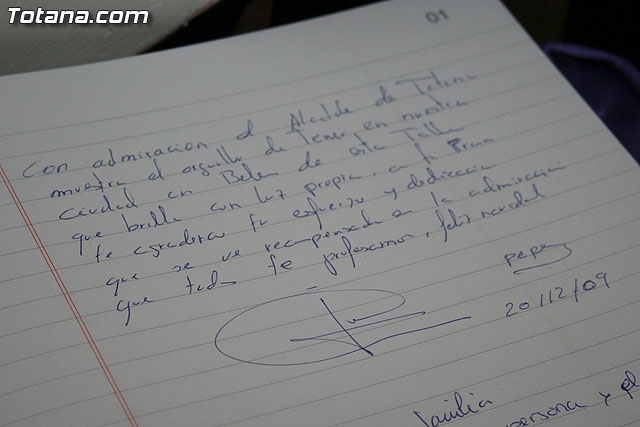 Totana.com
01
Con admiración el Alcalde de Totana
muestra el orgullo de Tener en nuestra
ciudad un Belen de esta Talla
que brilla con luz propia, a ti Fran
te agradezco tu esfuerzo y dedicación
que se ve recompensado a la admiración
que todos te profesamos, feliz navidad
pepe
20/12/09
familia
persona y el